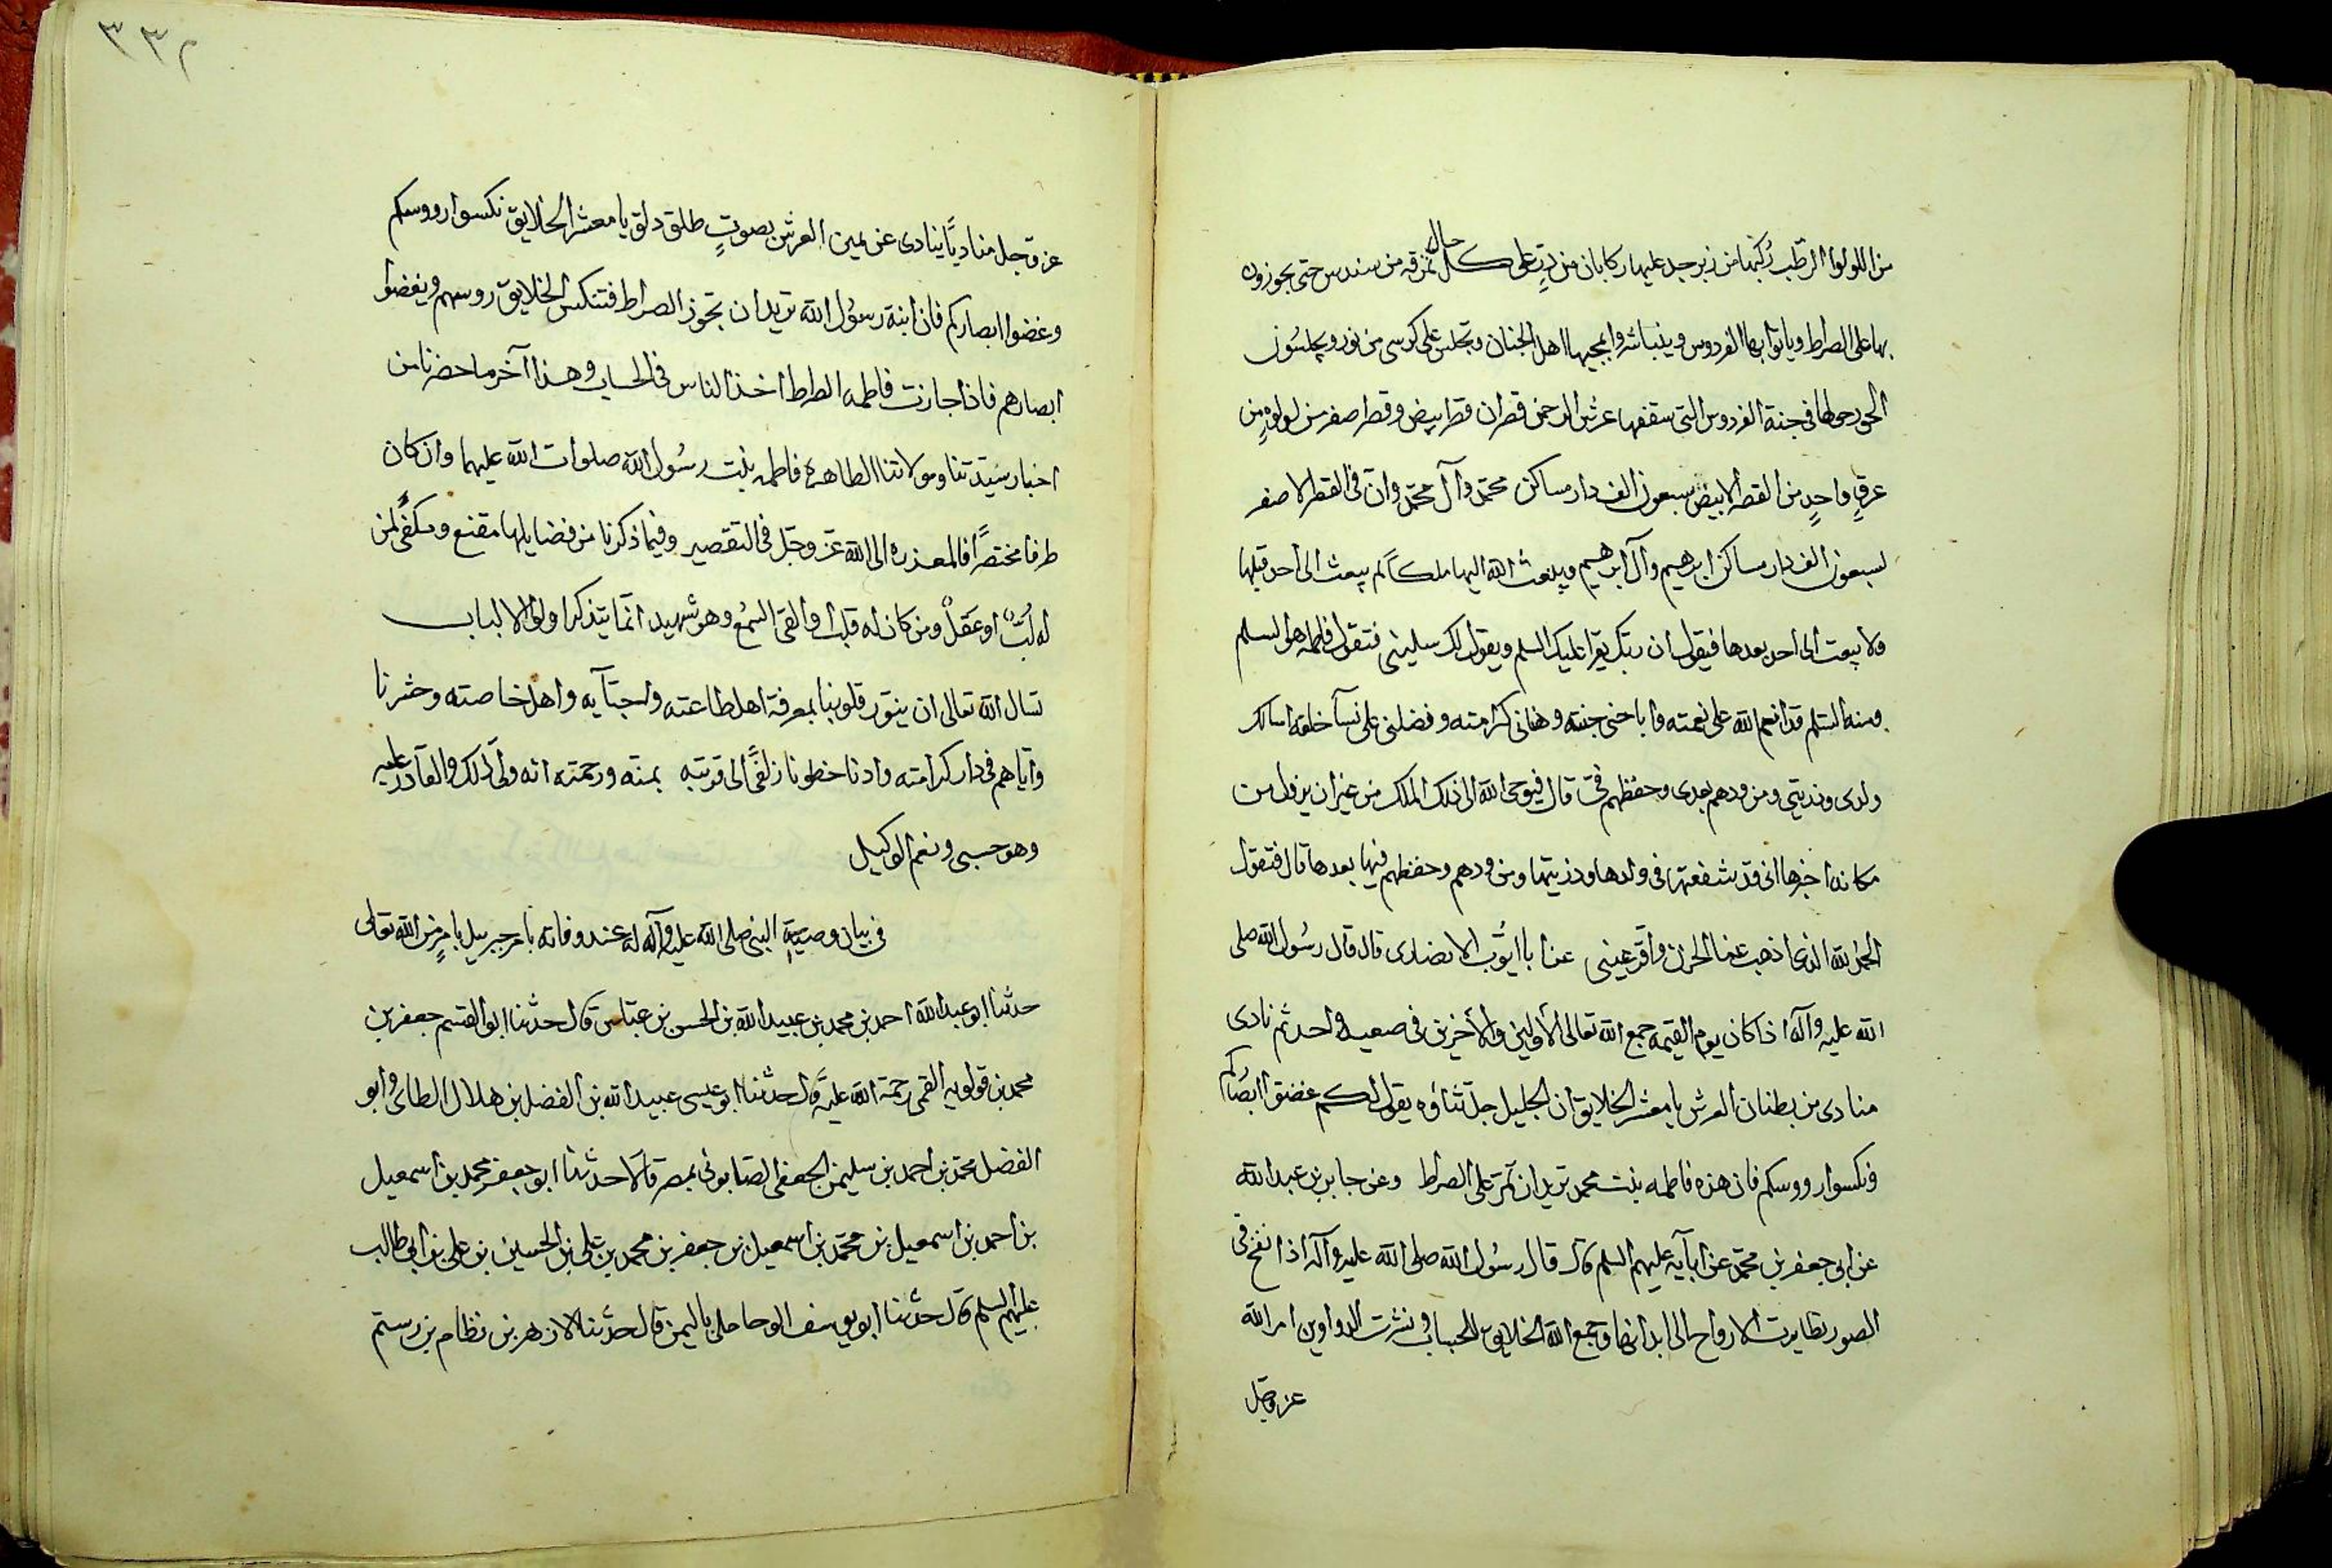 من اللولوا الرطب ركبها من زبرجد عليها ركابان من در على كل حال نمرقه من سندس حتى يجوزون
بها على الصراط وياتوا بها الفردوس ويتباشروا بمجيها اهل الجنان وتجلس على كرسى من نور ويجلسون
الحور حولها فى جنة الفردوس التى سقفها عرش الرحمن قصران قصر ابيض وقصر اصفر من لولوه من
عرق واحد من القصر الابيض سبعون الف دار مساكن محمد وآل محمد وان فى القصر الاصفر
لسبعون الف دار مساكن ابرهيم وآل ابرهيم ويبعث الله اليها ملكاً لم يبعث الى احد قبلها
ولا يبعث الى احد بعدها فيقول ان ربك يقرا عليك السلم ويقول لك سلينى فتقول فاطمه هو السلم
ومنه السلم قد انعم الله على نعمته واباحنى جنته وهنانى كرامته وفضلنى على نسآ خلقه اسالك
ولدى وذريتى ومن ودهم بعدى وحفظهم فىّ قال فيوحى الله الى ذلك الملك من غير ان يزول من
مكانه اخبرها انى قد شفعتها فى ولدها وذريتها ومن ودهم وحفظهم فيها بعدها قال فتقول
الحمد لله الذى اذهب عنا الحزن واقر عينى عن ابا ايوب الانصارى قال قال رسول الله صلى
الله عليه وآله اذا كان يوم القيمة جمع الله تعالى الأولين والأخرين فى صعيد واحد ثم نادى
منادى من بطنان العرش يا معشر الخلايق ان الجليل جل ثناؤه يقول لكم غضوا ابصاركم
ونكسوا رووسكم فان هذه فاطمه بنت محمد تريد ان تمر على الصراط وعن جابر بن عبد الله
عن ابى جعفر بن محمد عن ابآيه عليهم السلم قال قال رسول الله صلى الله عليه وآله اذا نفخ فى
الصور تطايرت الارواح الى ابدانها وجمع الله الخلايق للحساب ونشرت الدواوين امر الله
عز وجل
٣٣٢
عز وجل مناديًا ينادى عن يمين العرش بصوتٍ طلق دلق يا معشر الخلايق نكسوا رووسكم
وغضوا ابصاركم فان ابنة رسول الله تريد ان تجوز الصراط فتنكس الخلايق روسهم ويغضوا
ابصارهم فاذا جازت فاطمه الصراط اخذ الناس فى الحساب وهذا آخر ما حضرنا من
اخبار سيدتنا ومولاتنا الطاهره فاطمه بنت رسول الله صلوات الله عليهما وان كان
طرفا مختصرًا فالمعذره الى الله عز وجل فى التقصير وفيما ذكرنا من فضايلها مقنع ومكفى لمن
له لبٌ او عقلٌ ومن كان له قلب او القى السمع وهو شهيد انما يتذكر اولوا الالباب
نسال الله تعالى ان ينور قلوبنا بمعرفة اهل طاعته واجتبآيه واهل خاصته وحشرنا
واياهم فى دار كرامته وادنا خطونا زلفًى الى قربته بمنه ورحمته انه ولى ذلك والقادر عليه
وهو حسبى ونعم الوكيل
فى بيان وصية النبى صلى الله عليه وآله له عند وفاته بامر جبريل بامر من الله تعالى
حدثنا ابو عبد الله احمد بن محمد بن عبيد الله بن الحسن بن عباس قال حدثنا ابو القسم جعفر بن
محمد بن قولويه القمى رحمة الله عليه قال حدثنا ابو عيسى عبيد الله بن الفضل بن هلال الطائى وابو
الفضل محمد بن احمد بن سليمن الجعفى الصابونى بمصر قالا حدثنا ابو جعفر محمد بن اسمعيل
بن احمد بن اسمعيل بن محمد بن اسمعيل بن جعفر بن محمد بن على بن الحسين بن على بن ابى طالب
عليهم السلم قال حدثنا ابو يوسف الوحاحلى باليمن قال حدثنا الازهر بن نظام بن رستم